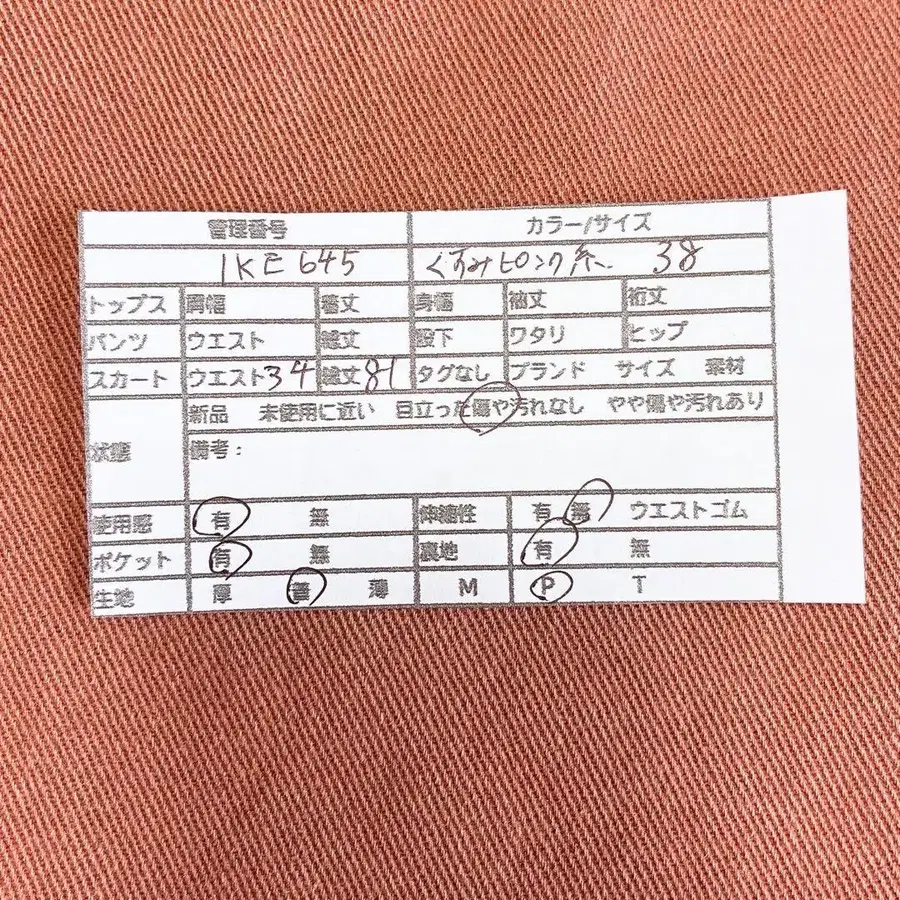 管理番号 カラー/サイズ
IKE645 くすみピンク系 38
トップス 肩幅 着丈 身幅 袖丈 裄丈
パンツ ウエスト 総丈 股下 ワタリ ヒップ
スカート ウエスト34 総丈81 タグなし ブランド サイズ 素材
状態 新品 未使用に近い 目立った傷や汚れなし やや傷や汚れあり
備考:
使用感 有 無 伸縮性 有 無 ウエストゴム
ポケット 有 無 裏地 有 無
生地 厚 普 薄 M P T